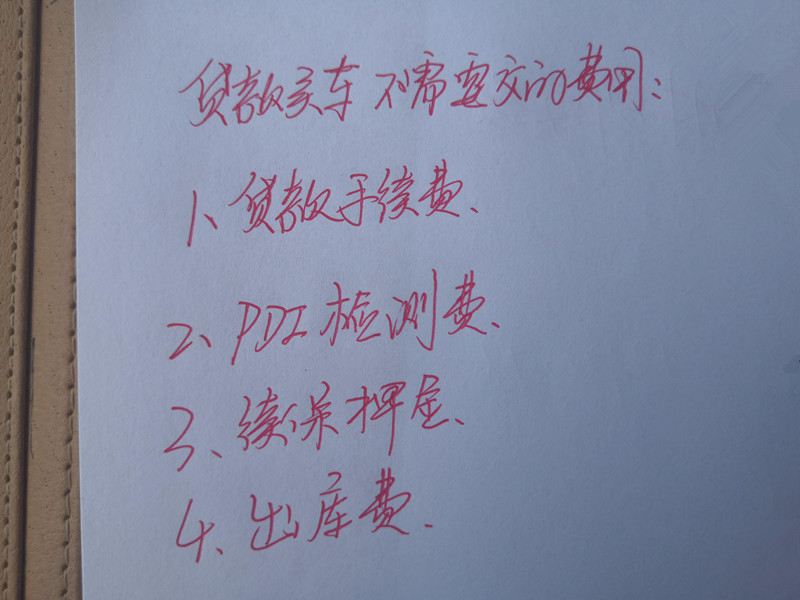 贷款买车不需要交的费用:
1、贷款手续费、
2、PDI检测费、
3、续保押金、
4、出库费.